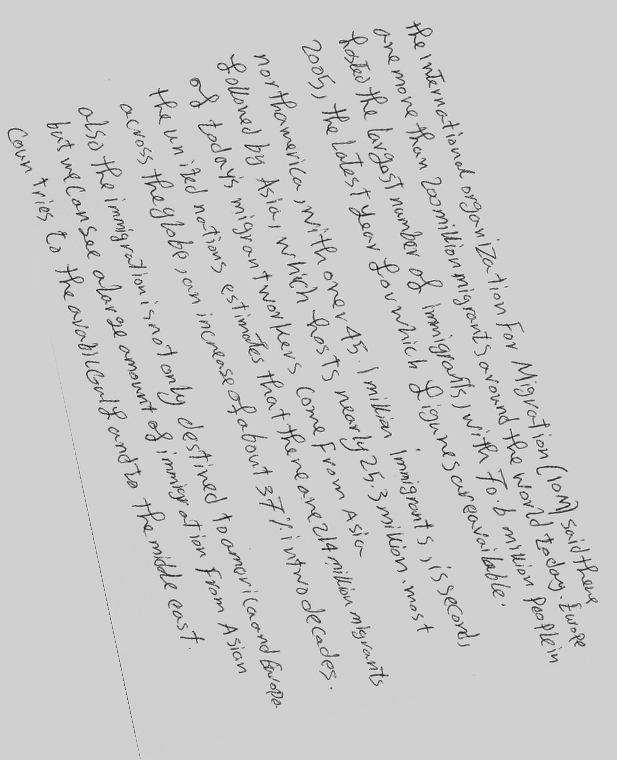 the international organization For Migration (IOM) said there
are more than 200 million migrants around the world today. Europe
hosted the largest number of immigrants, with 70.6 million people in
2005, the latest year for which figures are available.
north america, with over 45.1 million immigrants, is second,
followed by Asia, which hosts nearly 25.3 million. most
of today's migrant workers come From Asia
the united nations estimates that there are 214 million migrants
across the globe, an increase of about 37% in two decades.
also the immigration is not only destined to america and Europe
but we can see a large amount of immigration From Asian
countries to the arabic Gulf and to the middle east.